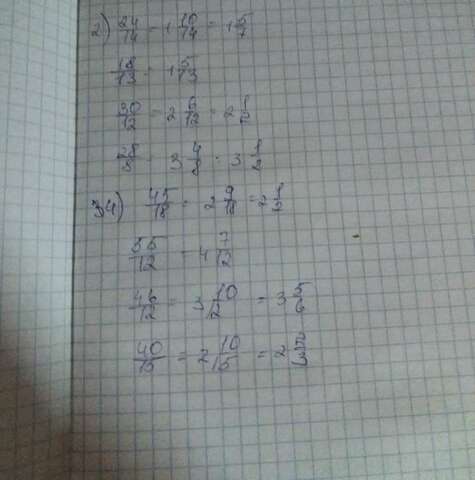 2) 24/14 = 1 10/14 = 1 5/7
18/13 = 1 5/13
30/12 = 2 6/12 = 2 1/2
28/8 = 3 4/8 = 3 1/2
34) 45/18 = 2 9/18 = 2 1/2
55/12 = 4 7/12
46/12 = 3 10/12 = 3 5/6
40/15 = 2 10/15 = 2 2/3